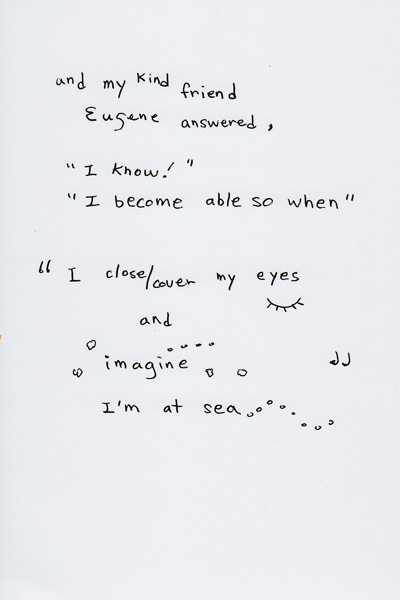 and my kind friend
Eugene answered,
"I know!"
"I become able so when"
"I close/cover my eyes
and
imagine
I'm at sea